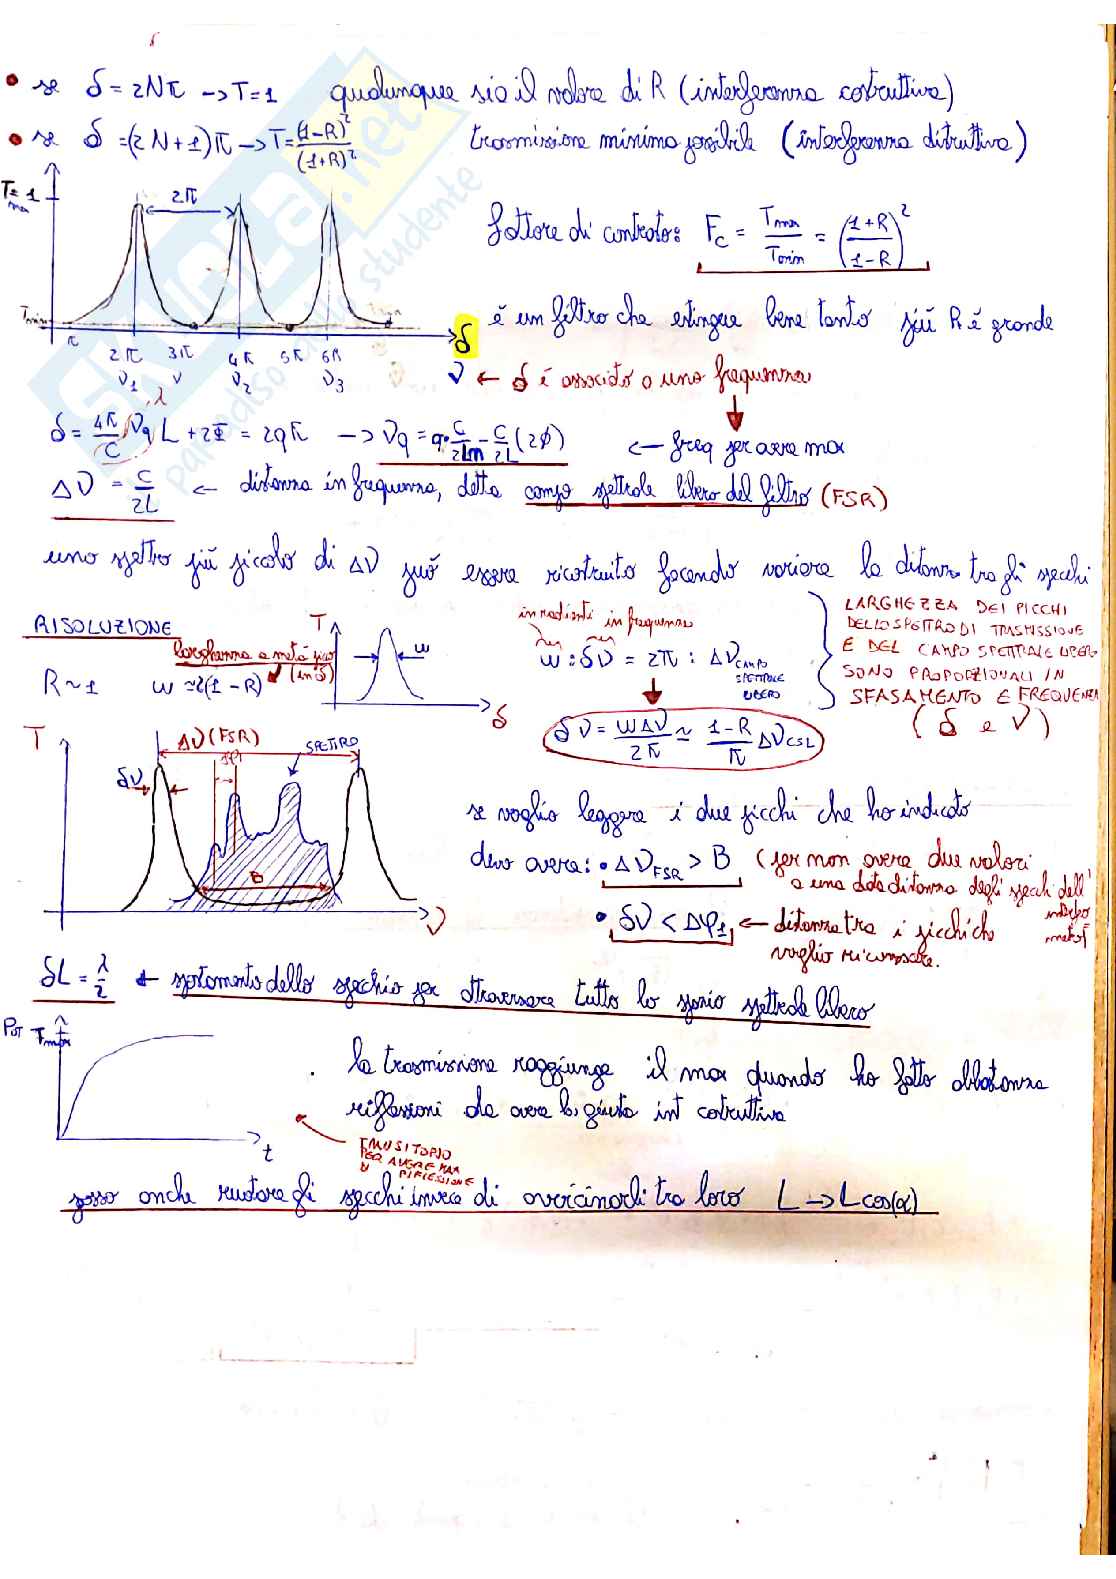 • se δ = 2Nπ → T=1 qualunque sia il valore di R (interferenza costruttiva)
• se δ = (2N+1)π → T = (1-R)²/(1+R)² trasmissione minima possibile (interferenza distruttiva)
T=1
max
2π
Tmin
π 2π 3π 4π 5π 6π δ
ν1 ν ν2 ν3 ν
SKUOLA.net
il paradiso dello studente
fattore di contrasto: Fc = Tmax/Tmin = ((1+R)/(1-R))²
è un filtro che estingue bene tanto più R è grande
← δ è associato a una frequenza
δ = 4π/C νq L + 2Φ = 2qπ → νq = q · C/2Ln - C/2L (2φ) ← freq per avere max
Δν = C/2L ← distanza in frequenza, detta campo spettrale libero del filtro (FSR)
uno spettro più piccolo di Δν può essere ricostruito facendo variare la distanza tra gli specchi
RISOLUZIONE
larghezza a metà (in δ)
R ~ 1 w ≃ 2(1-R)
T w δ
in radianti in frequenza
w : δν = 2π : Δν CAMPO SPETTRALE LIBERO
δν = wΔν/2π ≃ 1-R/π Δν CSL
LARGHEZZA DEI PICCHI
DELLO SPETTRO DI TRASMISSIONE
E DEL CAMPO SPETTRALE LIBERO
SONO PROPORZIONALI IN
SFASAMENTO E FREQUENZA
(δ e ν)
T Δν (FSR) SPETTRO
δν
B
ν
se voglio leggere i due picchi che ho indicato
devo avere: • Δν FSR > B (per non avere due valori
a una data distanza degli specchi dell'
• δν < Δφ1 ← distanza tra i picchi che
voglio riconoscere.
δL = λ/2 ← spostamento dello specchio per attraversare tutto lo spazio spettrale libero
Tmax
t
la trasmissione raggiunge il max quando ho fatto abbastanza
riflessioni da avere la giusta int costruttiva
PER AVERE MAX
RIFLESSIONE
posso anche ruotare gli specchi invece di avvicinarli tra loro L → L cos(α)